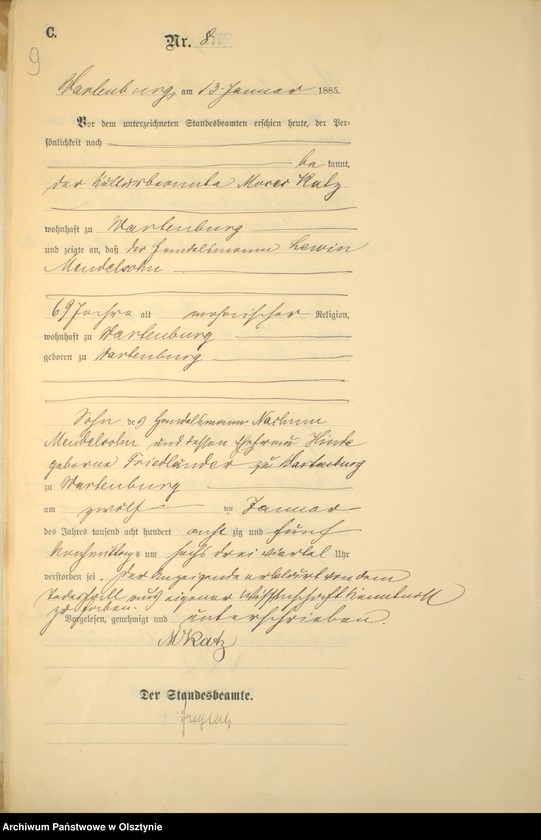 C.
Nr. 8
9
Wartenburg, am 13. Januar 1885.
Vor dem unterzeichneten Standesbeamten erschien heute, der Per-
sönlichkeit nach
be kannt,
der Kultusbeamte Moses Katz
wohnhaft zu Wartenburg
und zeigte an, daß der Handelsmann Lewin
Mendelsohn
69 Jahre alt mosaischer Religion,
wohnhaft zu Wartenburg
geboren zu Wartenburg
Sohn des Handelsmann Nachum
Mendelsohn und dessen Ehefrau Hinde
geborne Friedländer zu Wartenburg
zu Wartenburg
am zwölf ten Januar
des Jahres tausend acht hundert acht zig und fünf
Nachmittags um sechs drei viertel Uhr
verstorben sei. Der Anzeigende erklärt von dem
Todesfall aus eigener Wissenschaft Kenntniß
zu haben.
Vorgelesen, genehmigt und unterschrieben.
M Katz
Der Standesbeamte.
Archiwum Państwowe w Olsztynie